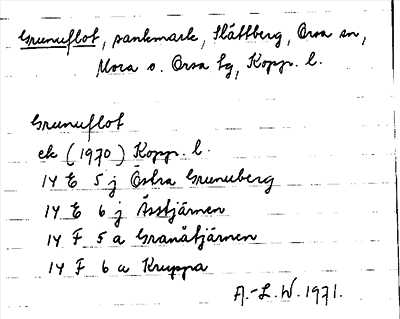 Grunuflot, sankmark, Slättberg, Orsa sn,
Mora o. Orsa tg, Kopp. l.
Grunuflot
ek (1970) Kopp. l.
14 E 5 j Östra Grunuberg
14 E 6 j Åsstjärnen
14 F 5 a Granåtjärnen
14 F 6 a Kruppa
A.-L. W. 1971.